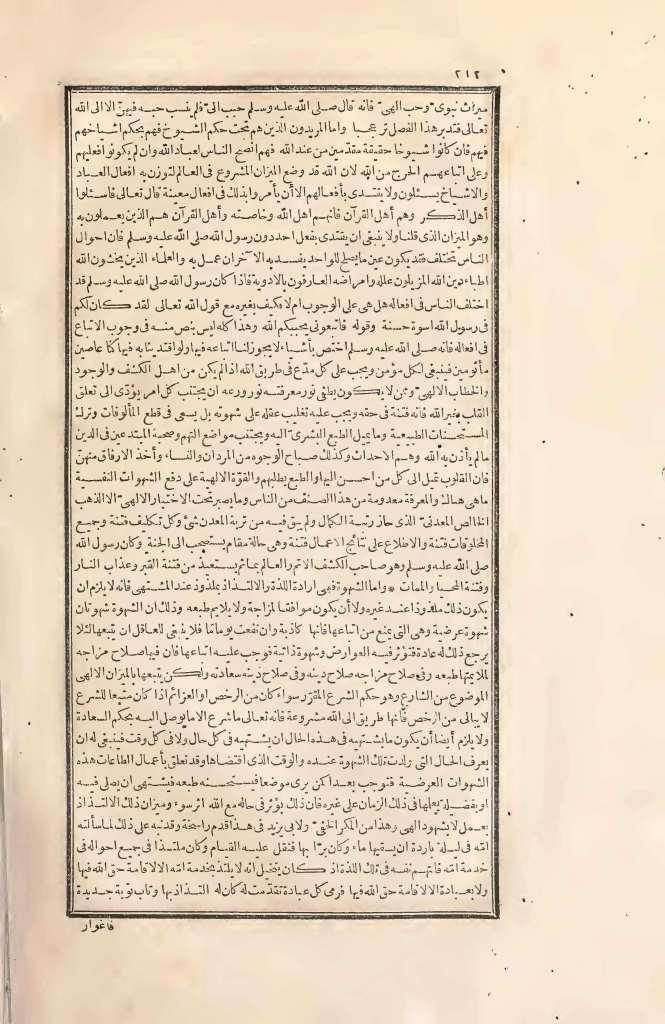 ٢١٢
ميراث نبوى وحب الهى فانه قال صلى الله عليه وسلم حبب الىّ فلم ينسب حبه فيهنّ الا الى الله
تعالى فتدبر هذا الفصل تر عجبا واما المريدون الذين هم تحت حكم الشيوخ فهم بحكم اشياخهم
فيهم فان كانوا شيوخا حقيقة مقدّمين من عند الله فهم انصح الناس لعباد الله وان لم يكونوا فعليهم
وعلى اتباعهم الحرج من الله لان الله قد وضع الميزان المشروع فى العالم لتوزن به افعال العباد
والاشياخ يسئلون ولا يقتدى بأفعالهم الا أن يأمروا بذلك فى افعال معينة قال تعالى فاسئلوا
أهل الذكر وهم أهل القرآن فانهم اهل الله وخاصته وأهل القرآن هم الذين يعملون به
وهو الميزان الذى قلنا ولا ينبغى ان يقتدى بفعل احد دون رسول الله صلى الله عليه وسلم فان احوال
الناس تختلف فقد يكون عين ما يصلح للواحد يفسد به الآخر ان عمل به والعلماء الذين يخشون الله
اطباء دين الله المزيلون علله وامراضه العارفون بالادوية فاذا كان رسول الله صلى الله عليه وسلم قد
اختلف الناس فى افعاله هل هى على الوجوب ام لا فكيف بغيره مع قول الله تعالى لقد كان لكم
فى رسول الله اسوة حسنة وقوله فاتبعونى يحببكم الله وهذا كله ليس بنص منه فى وجوب الاتباع
فى افعاله فانه صلى الله عليه وسلم اختص بأشياء لا يجوز لنا اتباعه فيها ولو اقتدينا به فيها كنا عاصين
مأثومين فينبغى لكل مؤمن ويجب على كل مدّع فى طريق الله اذا لم يكن من اهل الكشف والوجود
والخطاب الالهى وممن لا يكون يطفى نور معرفته نور ورعه ان يجتنب كل امر يؤدّى الى تعلق
القلب بغير الله فانه فتنة فى حقه ويجب عليه تغليب عقله على شهوته بل يسعى فى قطع المألوفات وترك
المستحسنات الطبيعية وما يميل الطبع البشرى اليه ويجتنب مواضع التهم وصحبة المبتدعين فى الدين
مالم يأذن به الله وهم الاحداث وكذلك صباح الوجوه من المردان والنساء وأخذ الارفاق منهنّ
فان القلوب تميل الى كل من احسن اليها والطبع يطلبهم والقوّة الالهية على دفع الشهوات النفسية
ما هى هنالك والمعرفة معدومة من هذا الصنف من الناس وما يصبر تحت الاختبار الالهى الا الذهب
الخالص المعدنى الذى حاز رتبة الكمال ولم يبق فيه من تربة المعدن شئ وكل تكليف فتنة وجميع
المخلوقات فتنة والاطلاع على نتائج الاعمال فتنة وهى حالة مقام يستصحب الى الجنة وكان رسول الله
صلى الله عليه وسلم وهو صاحب الكشف الاتم والعالم بما ثم يستعيذ من فتنة القبر وعذاب النار
وفتنة المحيا والممات * واما الشهوة فهى ارادة اللذة والالتذاذ بملذوذ عند المشتهى فانه لا يلزم ان
يكون ذلك ملذوذا عند غيره ولا أن يكون موافقا لمزاجه ولا يلايم طبعه وذلك ان الشهوة شهوتان
شهوة عرضية وهى التى يمنع من اتباعها فانها كاذبة وان نفعت يوما تما فلا ينبغى للعاقل ان يتبعها لئلا
يرجع ذلك له عادة فتؤثر فيه العوارض وشهوة ذاتية فوجب عليه اتباعها فان فيها صلاح مزاجه
لملايمتها طبعه وفى صلاح مزاجه صلاح دينه وفى صلاح دينه سعادته ولكن يتبعها بالميزان الالهى
الموضوع من الشارع وهو حكم الشرع المقرّر سواء كان من الرخص او العزائم اذا كان متبعا للشرع
لا يبالى من الرخص فانها طريق الى الله مشروعة فانه تعالى ما شرع الا ما يوصل اليه بحكم السعادة
ولا يلزم أيضا أن يكون ما يشتهيه فى هذه الحال ان يشتهيه فى كل حال ولا فى كل وقت فينبغى له ان
يعرف الحال التى ولدت تلك الشهوة عنده والوقت الذى اقتضاها وقد تعلق بأعمال الطاعات هذه
الشهوات العرضية فتوجب بعدا كمن يرى موضعا فيستحسنه طبعه فيشتهى ان يصلى فيه
او بفضيلة يعلمها فى ذلك الزمان على غيره فان ذلك يؤثر فى حاله مع الله اثر سوء وميزان ذلك الالتذاذ
بعمل لا بشهود الهى وهذا من المكر الخفى ولابى يزيد فى هذا قدم راسخة وقد نبه على ذلك لما سألته
امّه فى ليلة باردة ان يسقيها ماء وكان برّا بها فثقل عليه القيام وكان ملتذا فى جميع احواله فى
خدمة امّه فاتهم نفسه فى تلك اللذة اذ كان يتخيل انه لا يلتذ بخدمة امّه الا لاقامة حق الله فيها
ولا بعبادة الا لاقامة حق الله فيها فرمى كل عبادة تقدّمت له كان له التذاذ بها وتاب توبة جديدة
فاغوار